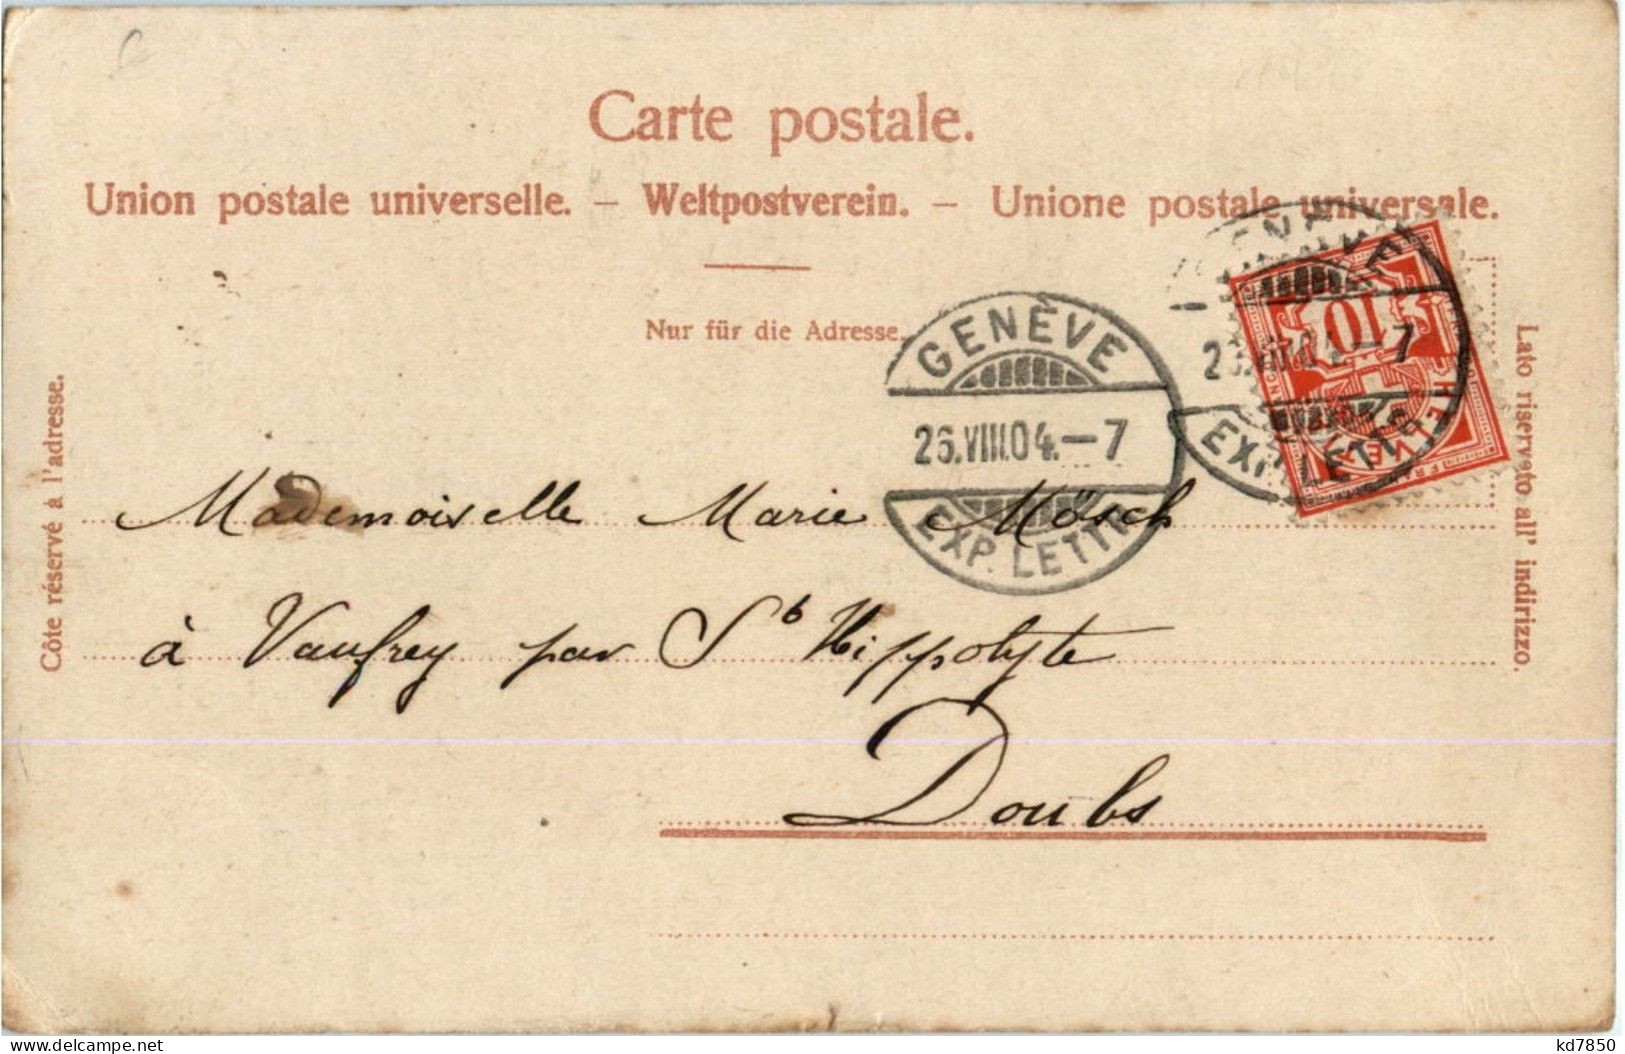 Carte postale.
Union postale universelle. – Weltpostverein. – Unione postale universale.
Nur für die Adresse.
Côte réservé à l'adresse.
Lato riservato all' indirizzo.
GENÈVE
26.VIII.04.–7
EXP. LETTR
GENÈVE
26.VIII.04.–7
EXP. LETTR
10
HELVETIA
Mademoiselle Marie Mösch
à Vaufrey par St Hippolyte
Doubs
kd7850